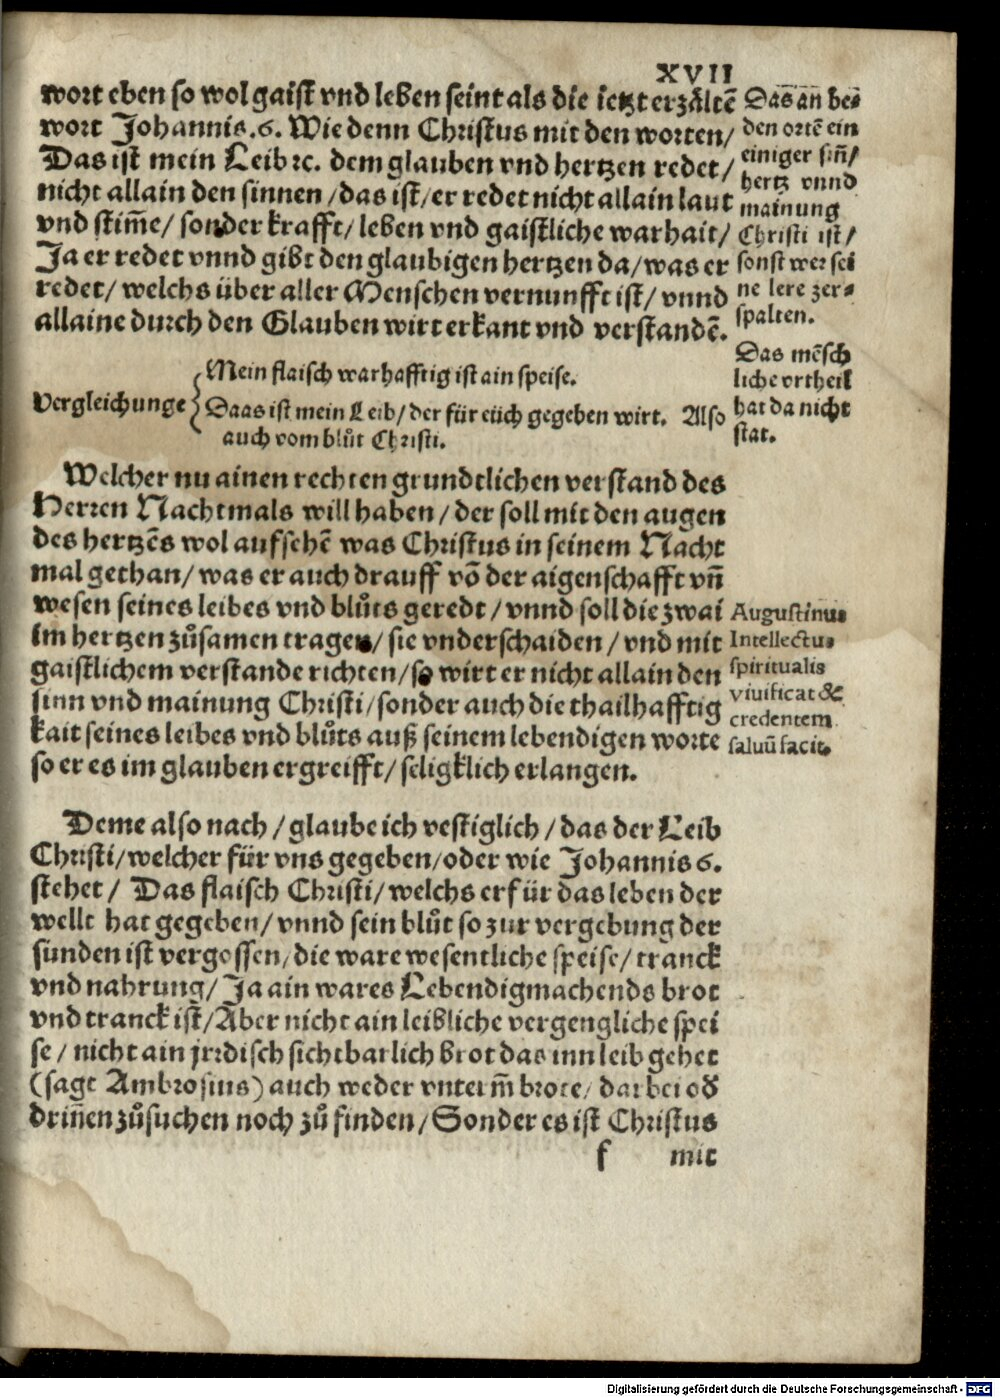 XVII
wort eben so wol gaist vnd leben seint als die ietzt erzälte᷑
wort Johannis .6. Wie denn Christus mit den worten/
Das ist mein Leib ⁊c. dem glauben vnd hertzen redet/
nicht allain den sinnen/ das ist/ er redet nicht allain laut
vnd stim̃e/ sonder krafft/ leben vnd gaistliche warhait/
Ja er redet vnnd gibt den glaubigen hertzen da/ was er
redet/ welchs über aller Menschen vernunfft ist/ vnnd
allaine durch den Glauben wirt erkant vnd verstandẽ.
Das an bei
den ortẽ ein
einiger siñ/
hertz vnnd
mainung
Christi ist/
sonst wer sei
ne lere zer-
spalten.
Das mẽsch
liche vrtheil
hat da nicht
stat.
Vergleichunge
Mein flaisch warhafftig ist ain speise.
Daas ist mein Leib/ der für eüch gegeben wirt. Also
auch vom blůt Christi.
Welcher nu ainen rechten grundtlichen verstand des
Herren Nachtmals will haben/ der soll mit den augen
des hertzẽs wol aufsehẽ was Christus in seinem Nacht
mal gethan/ was er auch drauff võ der aigenschafft vñ
wesen seines leibes vnd blůts geredt/ vnnd soll die zwai
im hertzen zůsamen tragen/ sie vnderschaiden/ vnd mit
gaistlichem verstande richten/ so wirt er nicht allain den
sinn vnd mainung Christi/ sonder auch die thailhafftig
kait seines leibes vnd blůts auß seinem lebendigen worte
so er es im glauben ergreifft/ seligklich erlangen.
Augustinus
Intellectus
spiritualis
viuificat &
credentem
saluũ facit.
Deme also nach/ glaube ich vestiglich/ das der Leib
Christi/ welcher für vns gegeben/ oder wie Johannis 6.
stehet/ Das flaisch Christi/ welchs er für das leben der
wellt hat gegeben/ vnnd sein blůt so zur vergebung der
sünden ist vergossen/ die ware wesentliche speise/ tranck
vnd nahrung/ Ja ain wares Lebendigmachends brot
vnd tranck ist/ Aber nicht ain leibliche vergengliche spei
se/ nicht ain jrrdisch sichtbarlich brot das inn leib gehet
(sagt Ambrosius) auch weder vnterm̃ brote/ darbei od᷑
driñen zůsuchen noch zů finden/ Sonder es ist Christus
f mit
Digitalisierung gefördert durch die Deutsche Forschungsgemeinschaft - DFG